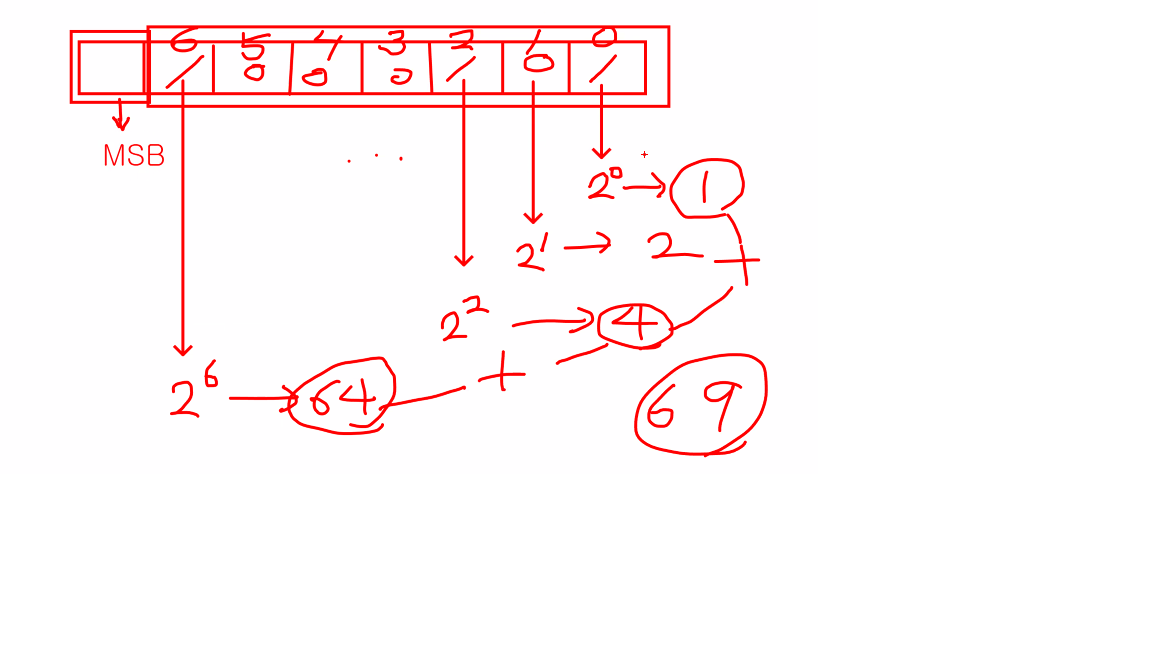 6 5 4 3 2 1 0
1 0 0 0 1 0 1
MSB
. . .
2⁰ → 1
2¹ → 2
+
2² → 4
+
2⁶ → 64
69